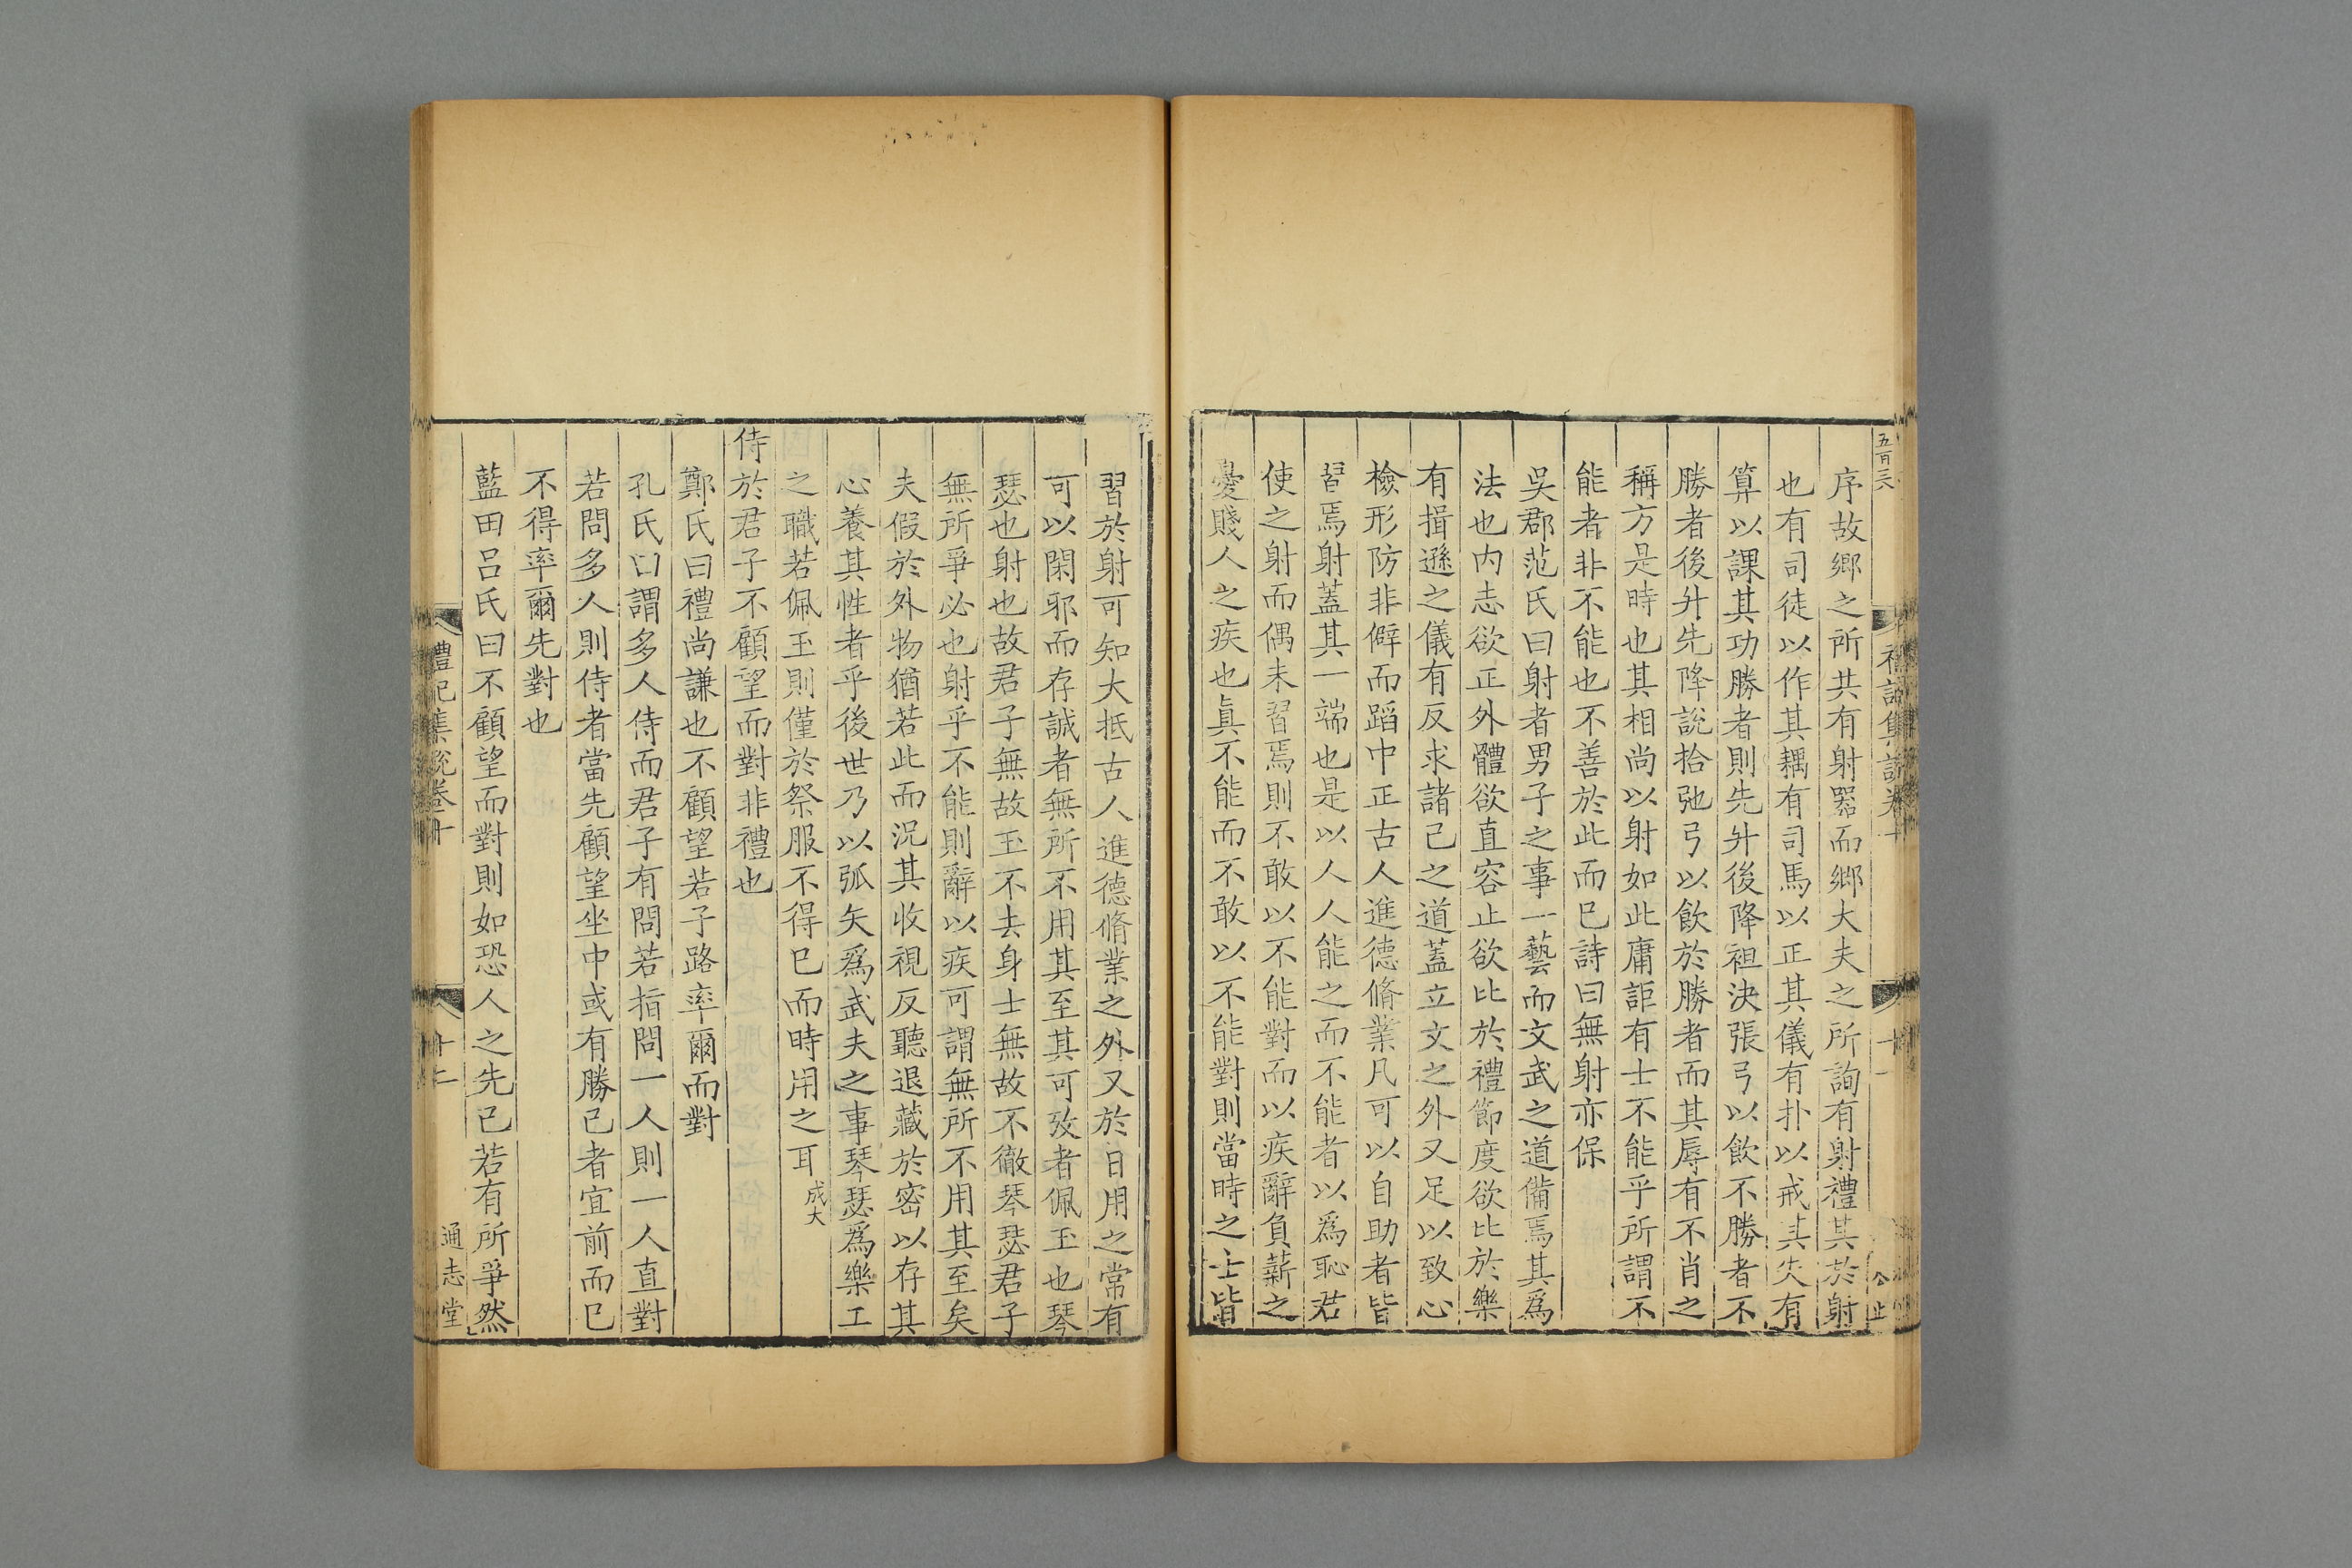 序故鄉之所共有射器而鄉大夫之所詢有射禮其於射
也有司徒以作其耦有司馬以正其儀有扑以戒其失有
算以課其功勝者則先升後降袒決張弓以飲不勝者不
勝者後升先降說拾弛弓以飲於勝者而其辱有不肖之
稱方是時也其相尚以射如此庸詎有士不能乎所謂不
能者非不能也不善於此而已詩曰無射亦保
吳郡范氏曰射者男子之事一藝而文武之道備焉其為
法也内志欲正外體欲直容止欲比於禮節度欲比於樂
有揖遜之儀有反求諸己之道蓋立文之外又足以致心
檢形防非僻而蹈中正古人進德脩業凡可以自助者皆
習焉射蓋其一端也是以人人能之而不能者以為恥若
使之射而偶未習焉則不敢以不能對而以疾辭負薪之
憂賤人之疾也眞不能而不敢以不能對則當時之士皆
習於射可知大抵古人進德脩業之外又於日用之常有
可以閑邪而存誠者無所不用其至其可攷者佩玉也琴
瑟也射也故君子無故玉不去身士無故不徹琴瑟君子
無所爭必也射乎不能則辭以疾可謂無所不用其至矣
夫假於外物猶若此而況其收視反聽退藏於密以存其
心養其性者乎後世乃以弧矢爲武夫之事琴瑟爲樂工
之職若佩玉則僅於祭服不得已而時用之耳成大
侍於君子不顧望而對非禮也
鄭氏曰禮尚謙也不顧望若子路率爾而對
孔氏曰謂多人侍而君子有問若指問一人則一人直對
若問多人則侍者當先顧望坐中或有勝己者宜前而已
不得率爾先對也
藍田呂氏曰不顧望而對則如恐人之先己若有所爭然
禮記集說卷十
十二
通志堂